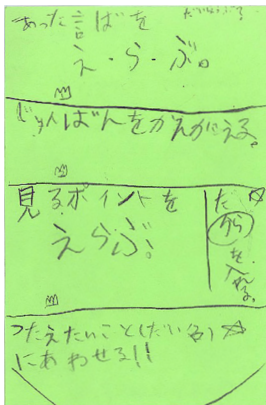 あった言ばを
え・ら・ぶ。
じゅんばんをかんがえる。
見るポイントを
えらぶ。
だから を 入れる。
つたえたいこと(だい名)☆
にあわせる!!